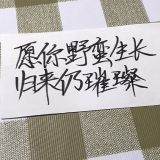 愿你野蛮生长
归来仍璀璨